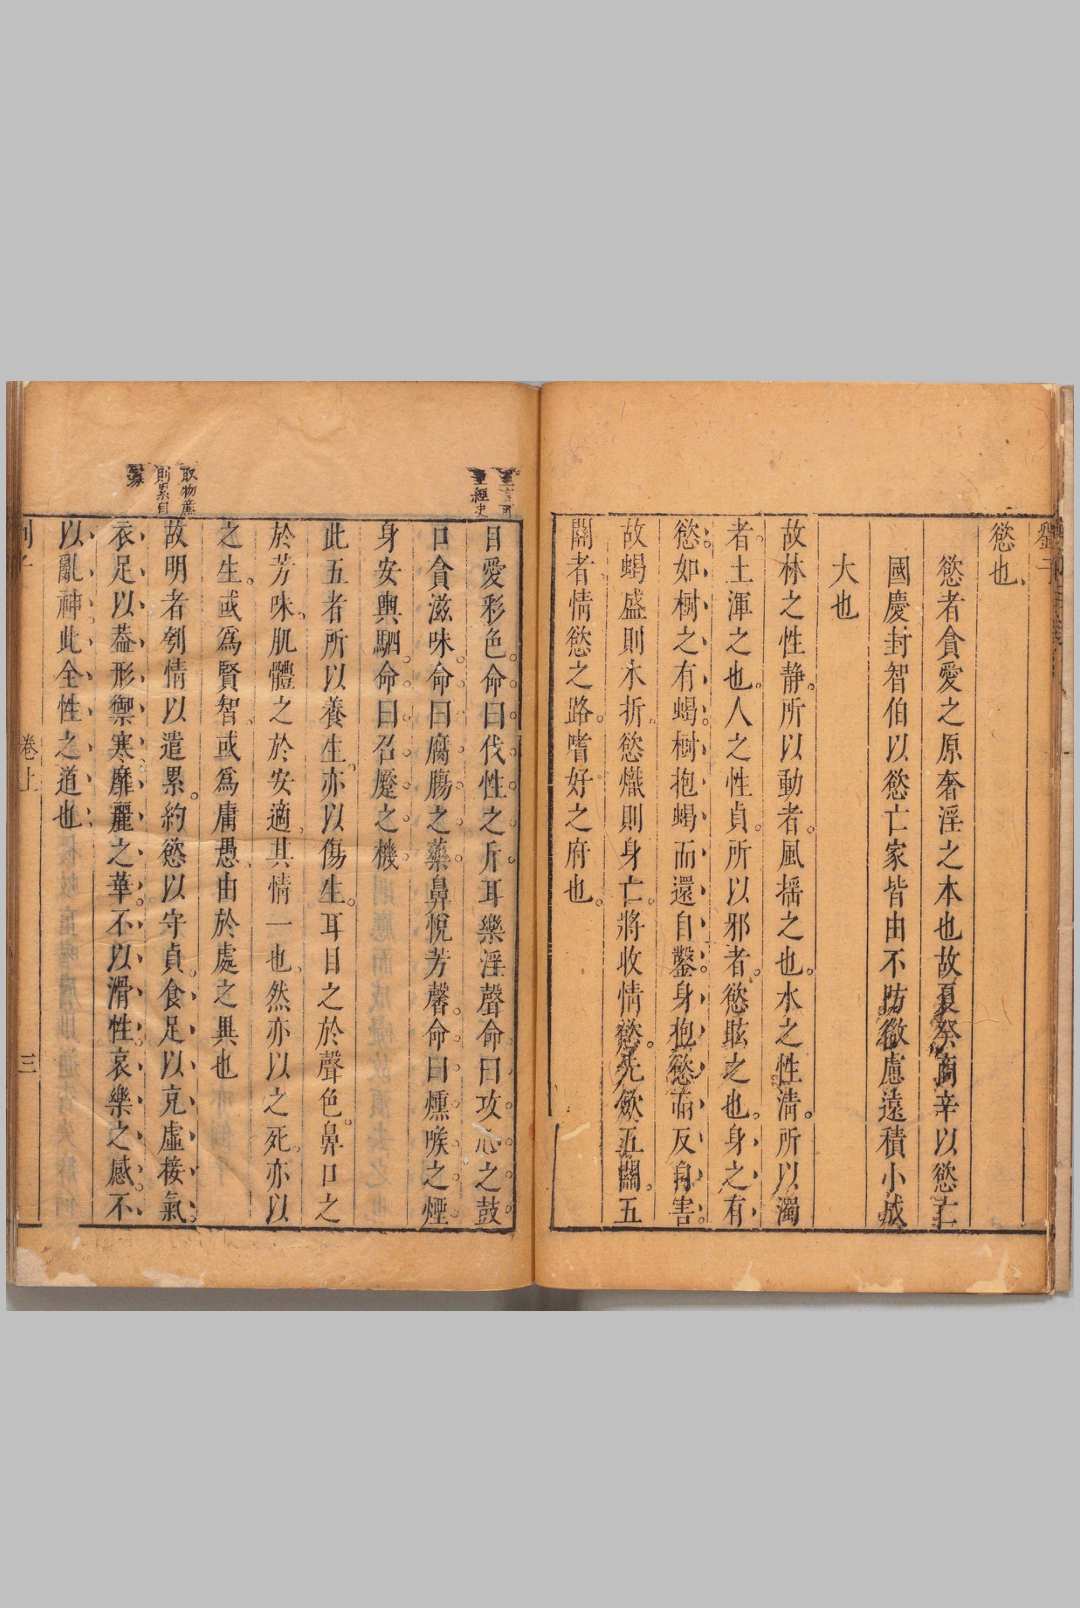 慾也
慾者貪愛之原奢淫之本也故夏癸商辛以慾亡
國慶封智伯以慾亡家皆由不防微慮遠積小成
大也
故林之性静所以動者風揺之也水之性清所以濁
者土渾之也人之性貞所以邪者慾眩之也身之有
慾如樹之有蝎樹抱蝎而還自鑿身抱慾而反自害
故蝎盛則木折慾熾則身亡將收情慾先歛五關五
關者情慾之路嗜好之府也
目愛彩色命曰伐性之斤耳樂淫聲命曰攻心之鼓
口貪滋味命曰腐膓之藥鼻悅芳馨命曰燻喉之煙
身安輿駟命曰召蹷之機
此五者所以養生亦以傷生耳目之於聲色鼻口之
於芳味肌體之於安適其情一也然亦以之死亦以
之生或爲賢智或爲庸愚由於處之異也
取物
則累自
故明者刳情以遣累約慾以守貞食足以充虛接氣
衣足以葢形禦寒靡麗之華不以滑性哀樂之感不
以亂神此全性之道也
卷上
三